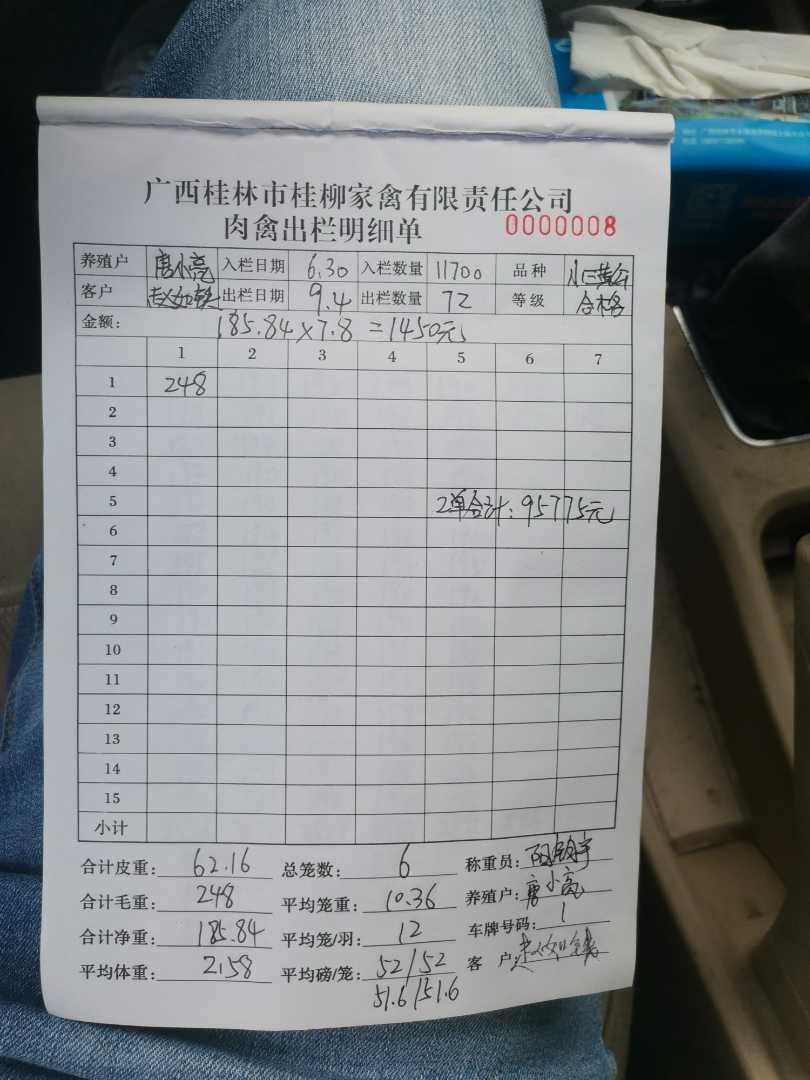 广西桂林市桂柳家禽有限责任公司
肉禽出栏明细单 0000008
养殖户 唐小亮 入栏日期 6.30 入栏数量 11700 品种
客户 赵如铁 出栏日期 9.4 出栏数量 72 等级 合格
金额: 185.84×7.8=1450元
1 2 3 4 5 6 7
1 248
2
3
4
5 2单合计:95775元
6
7
8
9
10
11
12
13
14
15
小计
合计皮重: 62.16 总笼数: 6 称重员:
合计毛重: 248 平均笼重: 10.36 养殖户: 唐小亮
合计净重: 185.84 平均笼/羽: 12 车牌号码: 1
平均体重: 2.58 平均磅/笼: 52/52 客 户
51.6/51.6